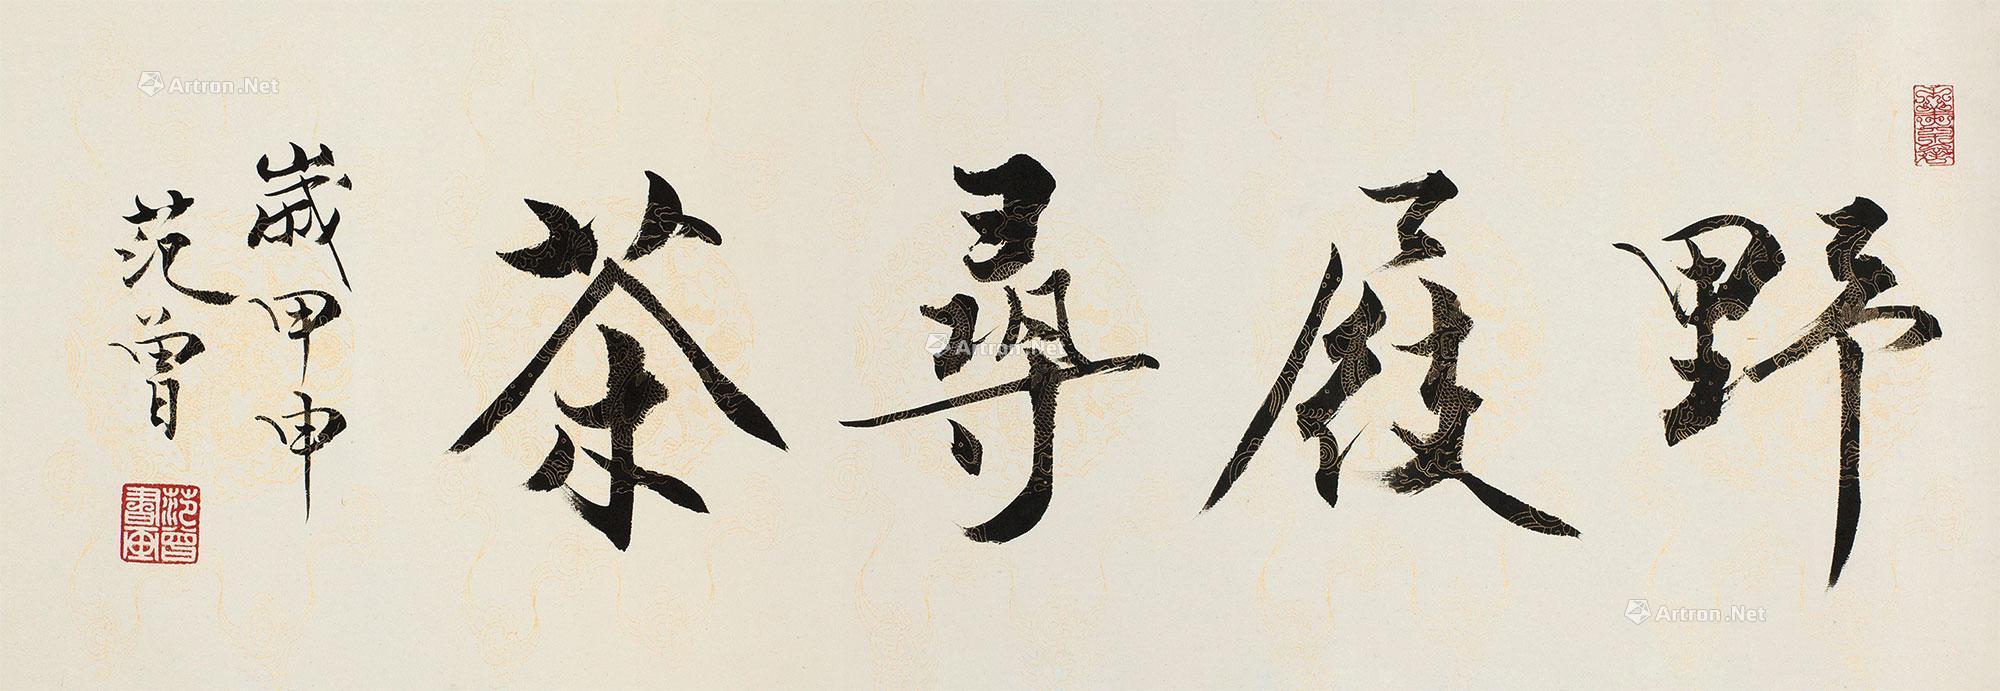 野屐尋茶
歲甲申
范曾
范曾書画
Artron.Net
Artron.Net
Artron.Net